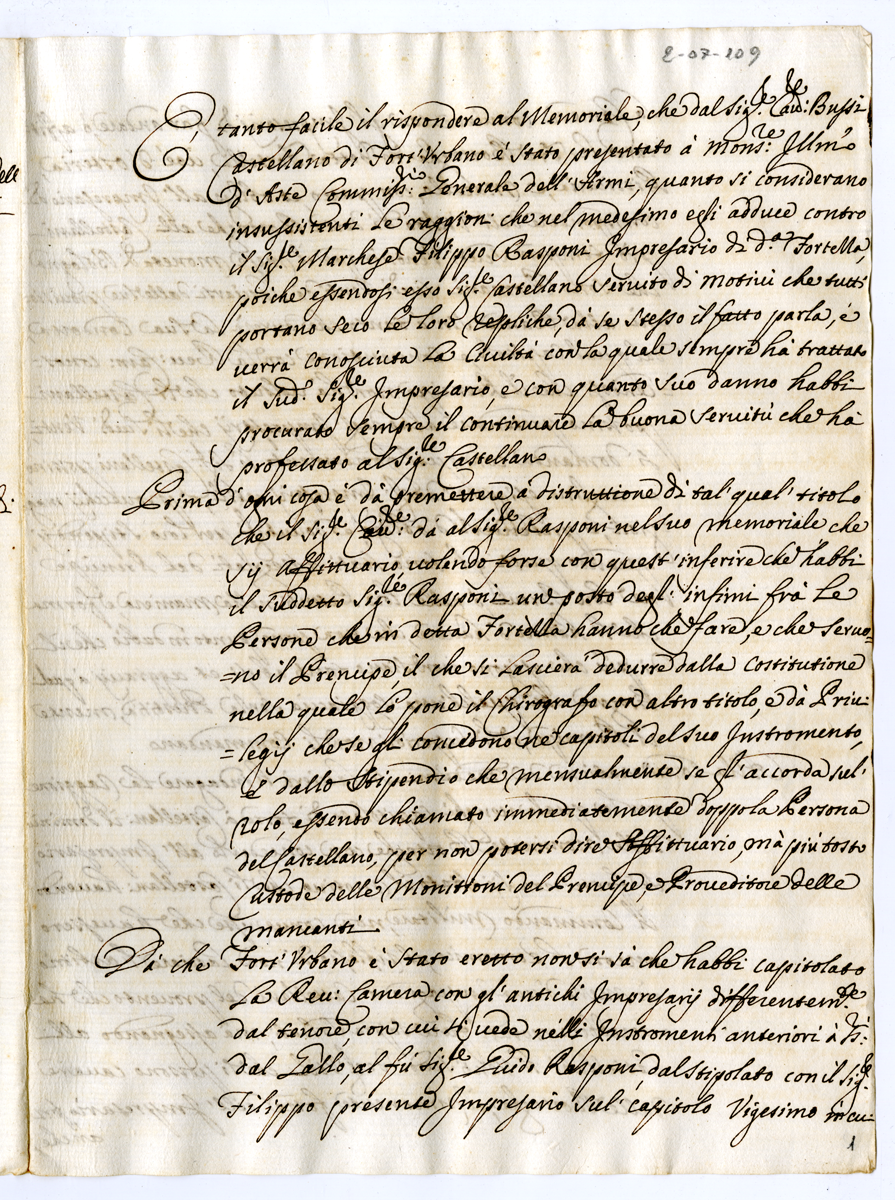 2-07-109
È tanto facile il rispondere al Memoriale, che dal Sig.re Cau.re Bussi
Castellano di Fort'Vrbano è stato presentato à Mons.re Jllm̃o
d'Aste Commiss.rio Generale dell'Armi, quanto si considerano
insussistenti le raggioni che nel medesimo egli adduce contro
il Sig.re Marchese Filippo Rasponi Jmpresario di d.a Fortezza,
poiche essendosi esso Sig.re Castellano seruito di motiui che tutti
portano seco le loro repliche, dà se stesso il fatto parla, è
uerrà conosciuta la Ciuiltà con la quale sempre hà trattato
il Sud.o Sig.re Jmpresario, e con quanto suo danno habbi
procurato sempre il continuare la buona seruitù che hà
professato al Sig.re Castellano
Prima d'ogni cosa è dà premettere à distruttione di tal qual' titolo
che il Sig.re Cau.re dà al Sig.re Rasponi nel suo memoriale che
sij Affittuario uolendo forse con quest' inferire che habbi
il suddetto Sig.re Rasponi un posto degl' infimi frà le
Persone che in detta Fortezza hanno che fare, e che seruo=
=no il Prencipe il che si lascierà dedurre dalla Costitutione
nella quale lo pone il Chirografo con altro titolo, e dà Priui=
=legij che se gli concedono ne capitoli del suo Jnstromento,
e dallo Stipendio che mensualmente se gl'accorda sul'
rolo, essendo chiamato immediatemente doppo la Persona
del Castellano, per non potersi dire Affittuario, mà più tosto
Custode delle Monitioni del Prencipe, e Proueditore delle
mancanti
Dà che Fort'Vrbano è stato eretto non si sà che habbi capitolato
la Reu: Camera con gl'antichi Jmpresarij differentem.te
dal tenore, con cui si uede nelli Jnstromenti anteriori à
dal Gallo, al fù Sig.re Guido Rasponi, dal stipolato con il Sig.re
Filippo presente Jmpresario sul' capitolo Vigesimo in cui
1